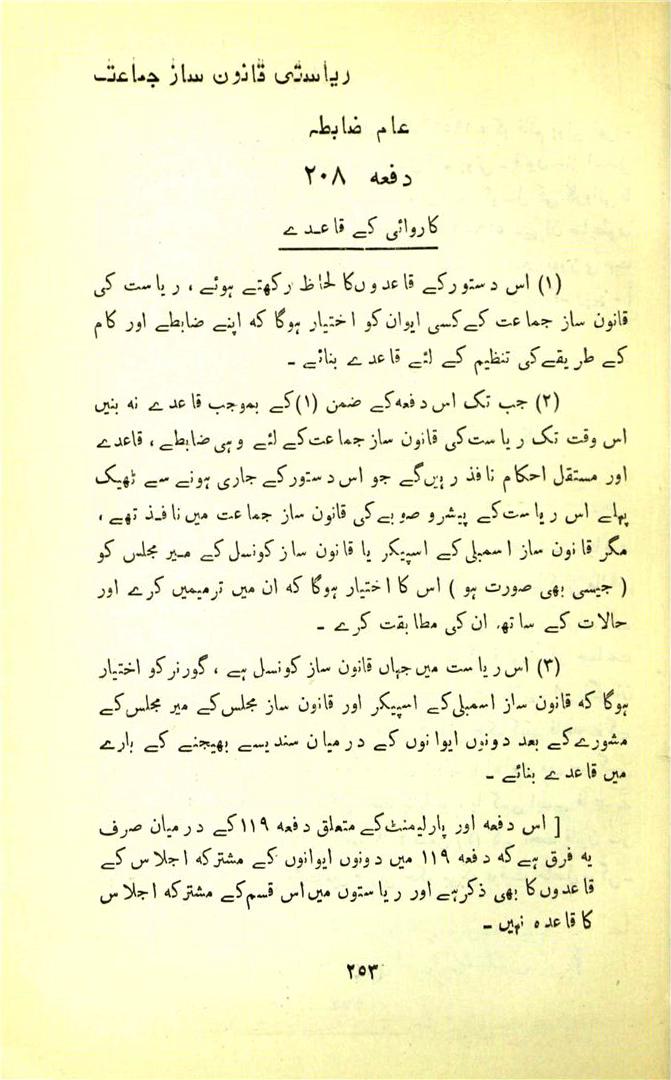 ریاستی قانون ساز جماعت
عام ضابطہ
دفعہ ۲۰۸
کاروائی کے قاعدے
(۱) اس دستور کے قاعدوں کا لحاظ رکھتے ہوئے ، ریاست کی
قانون ساز جماعت کے کسی ایوان کو اختیار ہوگا کہ اپنے ضابطے اور کام
کے طریقے کی تنظیم کے لئے قاعدے بنائے ۔
(۲) جب تک اس دفعہ کے ضمن (۱) کے بموجب قاعدے نہ بنیں
اس وقت تک ریاست کی قانون ساز جماعت کے لئے وہی ضابطے ، قاعدے
اور مستقل احکام نافذ رہیں گے جو اس دستور کے جاری ہونے سے ٹھیک
پہلے اس ریاست کے پیشرو صوبے کی قانون ساز جماعت میں نافذ تھے ،
مگر قانون ساز اسمبلی کے اسپیکر یا قانون ساز کونسل کے میر مجلس کو
( جیسی بھی صورت ہو ) اس کا اختیار ہوگا کہ ان میں ترمیمیں کرے اور
حالات کے ساتھ ان کی مطابقت کرے ۔
(۳) اس ریاست میں جہاں قانون ساز کونسل ہے ، گورنر کو اختیار
ہوگا کہ قانون ساز اسمبلی کے اسپیکر اور قانون ساز مجلس کے میر مجلس کے
مشورے کے بعد دونوں ایوانوں کے درمیان سندیسے بھیجنے کے بارے
میں قاعدے بنائے ۔
[ اس دفعہ اور پارلیمنٹ کے متعلق دفعہ ۱۱۹ کے درمیان صرف
یہ فرق ہے کہ دفعہ ۱۱۹ میں دونوں ایوانوں کے مشترکہ اجلاس کے
قاعدوں کا بھی ذکر ہے اور ریاستوں میں اس قسم کے مشترکہ اجلاس
کا قاعدہ نہیں ۔
۲۵۳